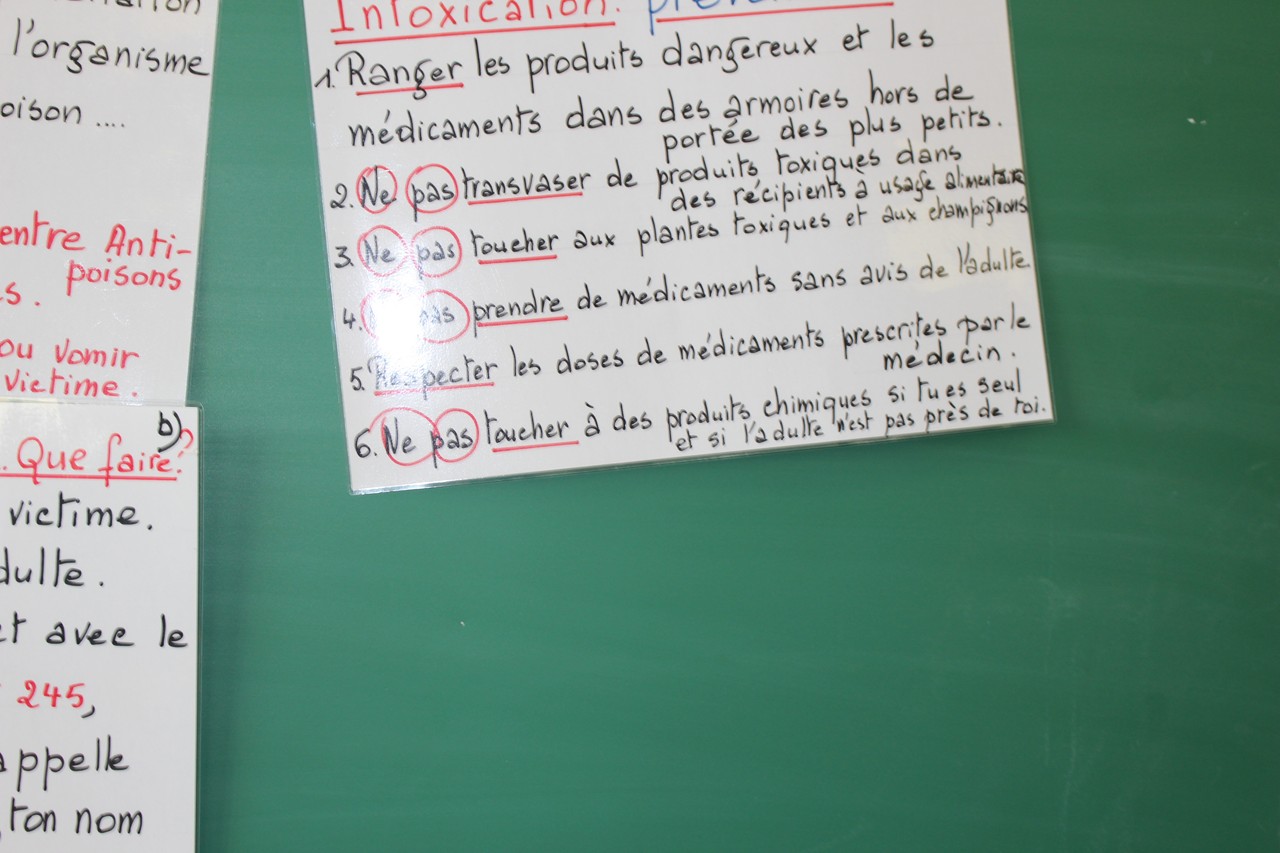 l'organisme
oison ....
entre Anti-
poisons
s.
ou vomir
victime.
b)
. Que faire?
victime.
dulte.
et avec le
245,
appelle
ton nom
Intoxication:
1. Ranger les produits dangereux et les
médicaments dans des armoires hors de
portée des plus petits.
2. Ne pas transvaser de produits toxiques dans
des récipients à usage alimentaire
3. Ne pas toucher aux plantes toxiques et aux champignons
4. pas prendre de médicaments sans avis de l'adulte.
5. Respecter les doses de médicaments prescrites par le
médecin.
6. Ne pas toucher à des produits chimiques si tu es seul
et si l'adulte n'est pas près de toi.